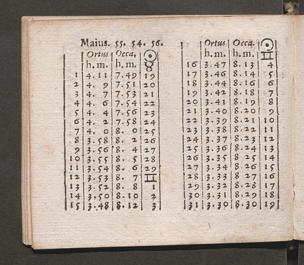 Maius. 55. 54. 56.
Ortus Occa. ☉
h. m. h. m. ♉
1 4. 11 7. 49 19
2 4. 9 7. 51 20
3 4. 7 7. 53 21
4 4. 6 7. 54 22
5 4. 4 7. 56 23
6 4. 2 7. 58 24
7 4. 0 8. 0 25
8 3. 58 8. 2 26
9 3. 56 8. 4 27
10 3. 55 8. 5 28
11 3. 54 8. 6 29
12 3. 53 8. 7 ♊
13 3. 52 8. 8 1
14 3. 50 8. 10 2
15 3. 48 8. 12 3
Ortus Occa. ☉
h. m. h. m. ♊
16 3. 47 8. 13 4
17 3. 46 8. 14 5
18 3. 44 8. 16 6
19 3. 42 8. 18 7
20 3. 41 8. 19 8
21 3. 40 8. 20 9
22 3. 39 8. 21 10
23 3. 38 8. 22 11
24 3. 37 8. 23 12
25 3. 36 8. 24 13
26 3. 35 8. 25 14
27 3. 34 8. 26 15
28 3. 33 8. 27 16
29 3. 32 8. 28 17
30 3. 31 8. 29 18
31 3. 30 8. 30 19